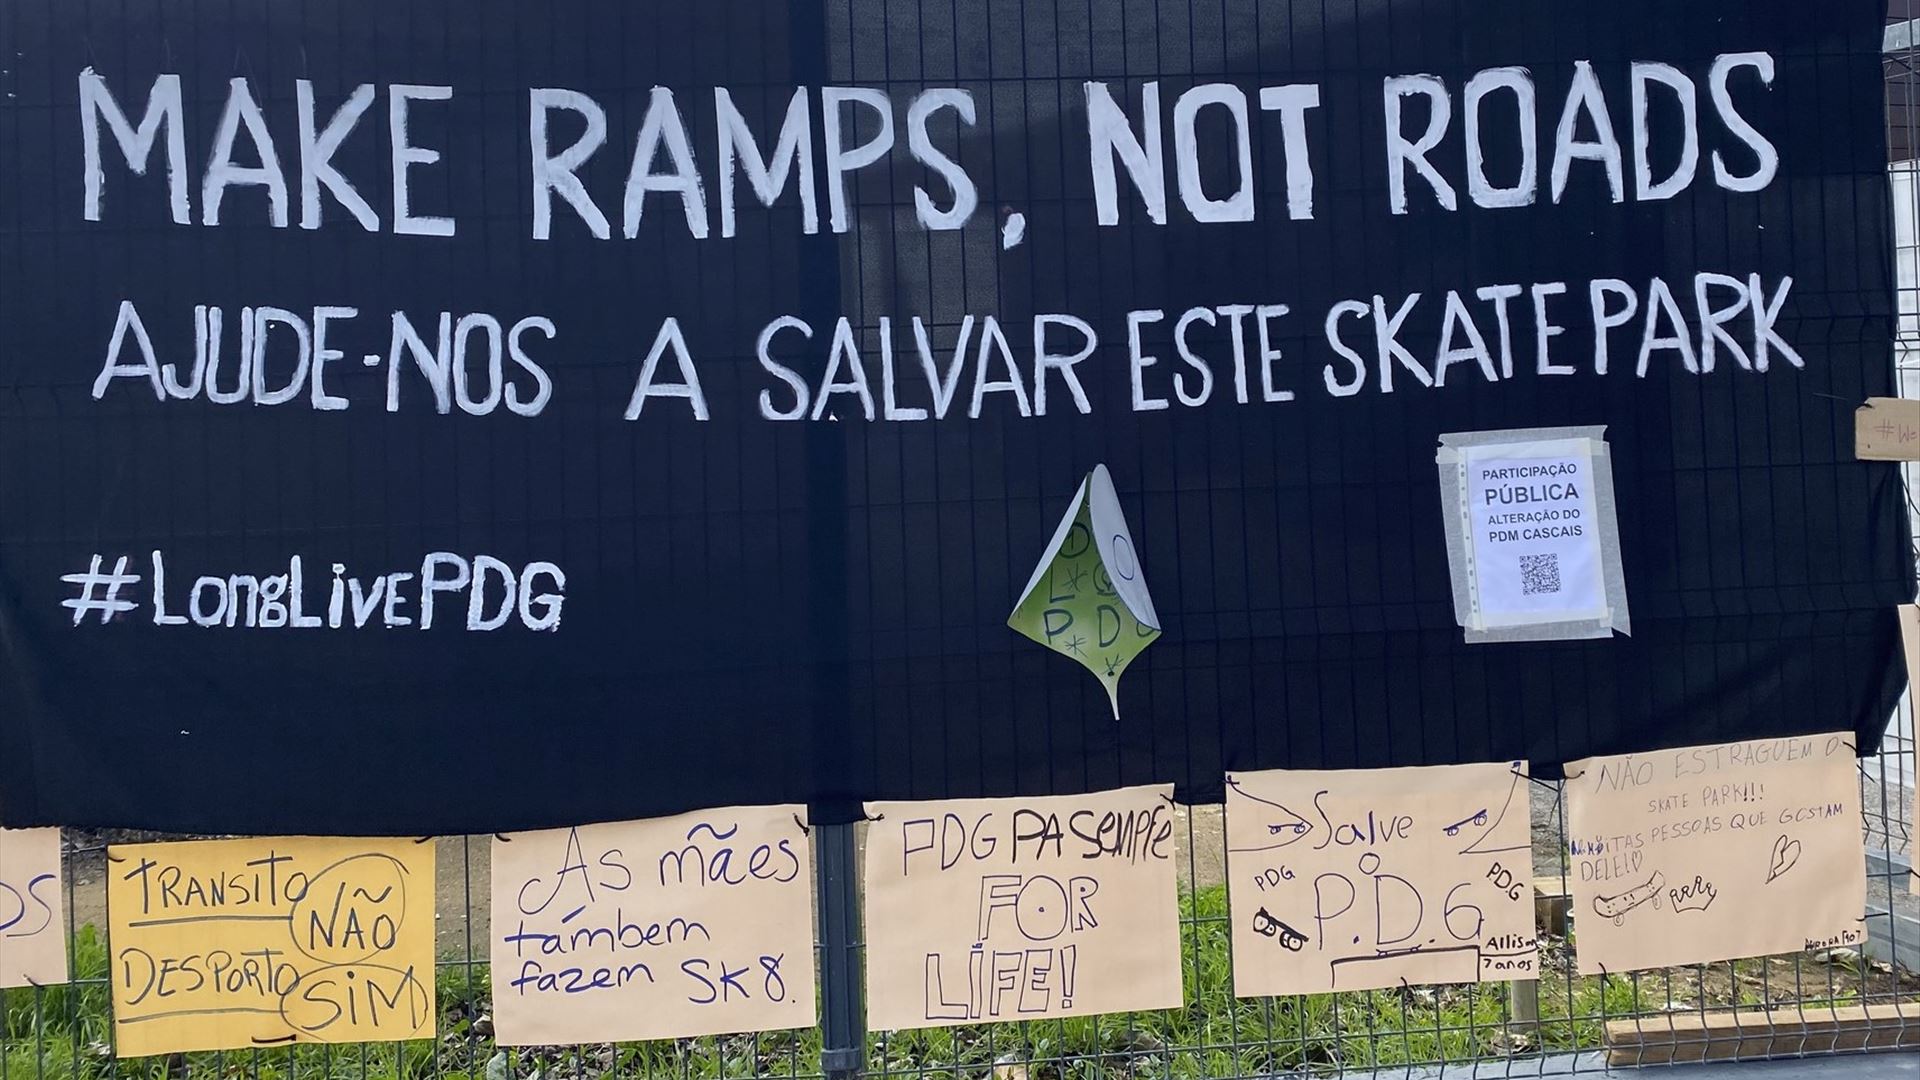 MAKE RAMPS, NOT ROADS
AJUDE-NOS A SALVAR ESTE SKATEPARK
#LongLivePDG
PARTICIPAÇÃO
PÚBLICA
ALTERAÇÃO DO
PDM CASCAIS
#We
P D
OS
TRANSITO NÃO
DESPORTO SIM
As mães
támbem
fazem SK8.
PDG PA SEMPRE
FOR
LIFE!
Salve
PDG
P.D.G
PDG
Allison
7 anos
NÃO ESTRAGUEM O
SKATE PARK!!!
MUITAS PESSOAS QUE GOSTAM
DELE!